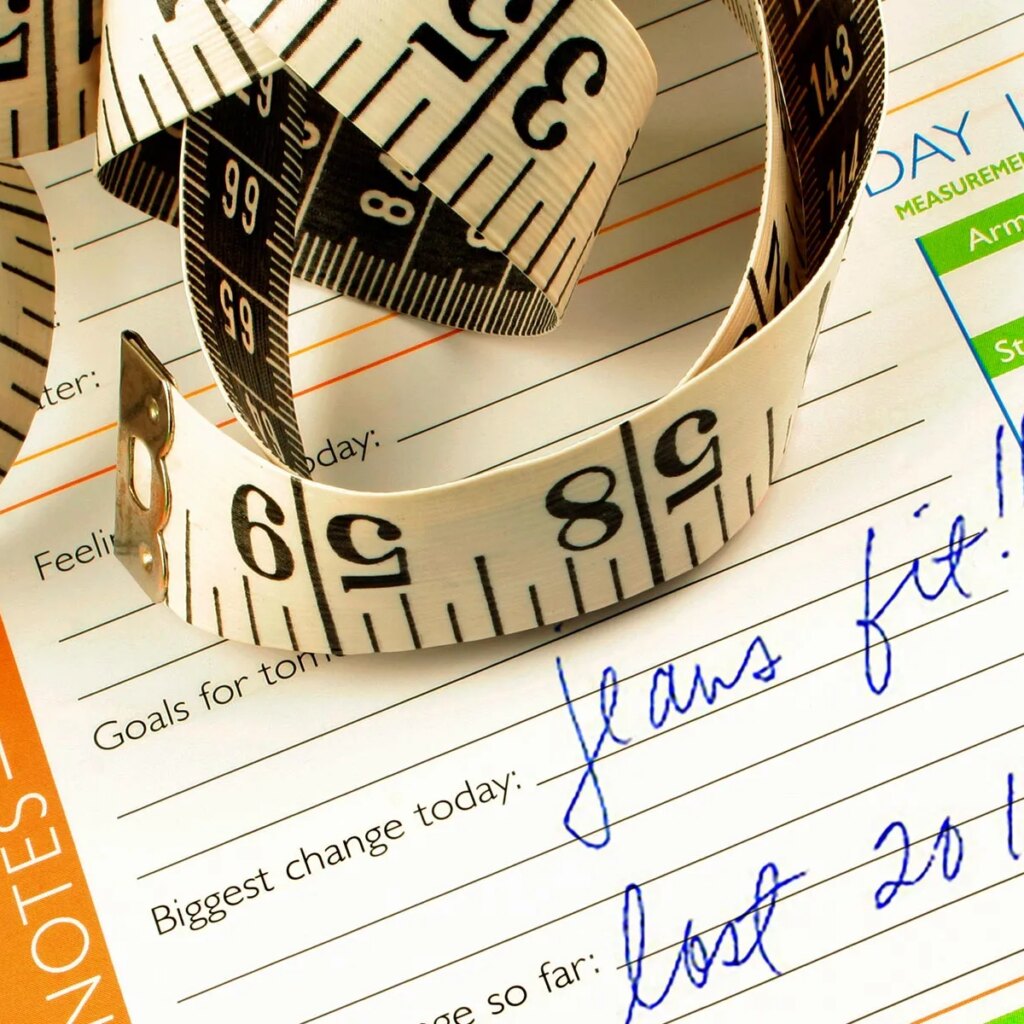 143
144
3
8
66
65
DAY
MEASUREMEN
Arm
St
ater:
oday:
Feelin
6 5 8 5
jeans fit!
Goals for tom
Biggest change today:
lost 20 l
ge so far:
NOTES